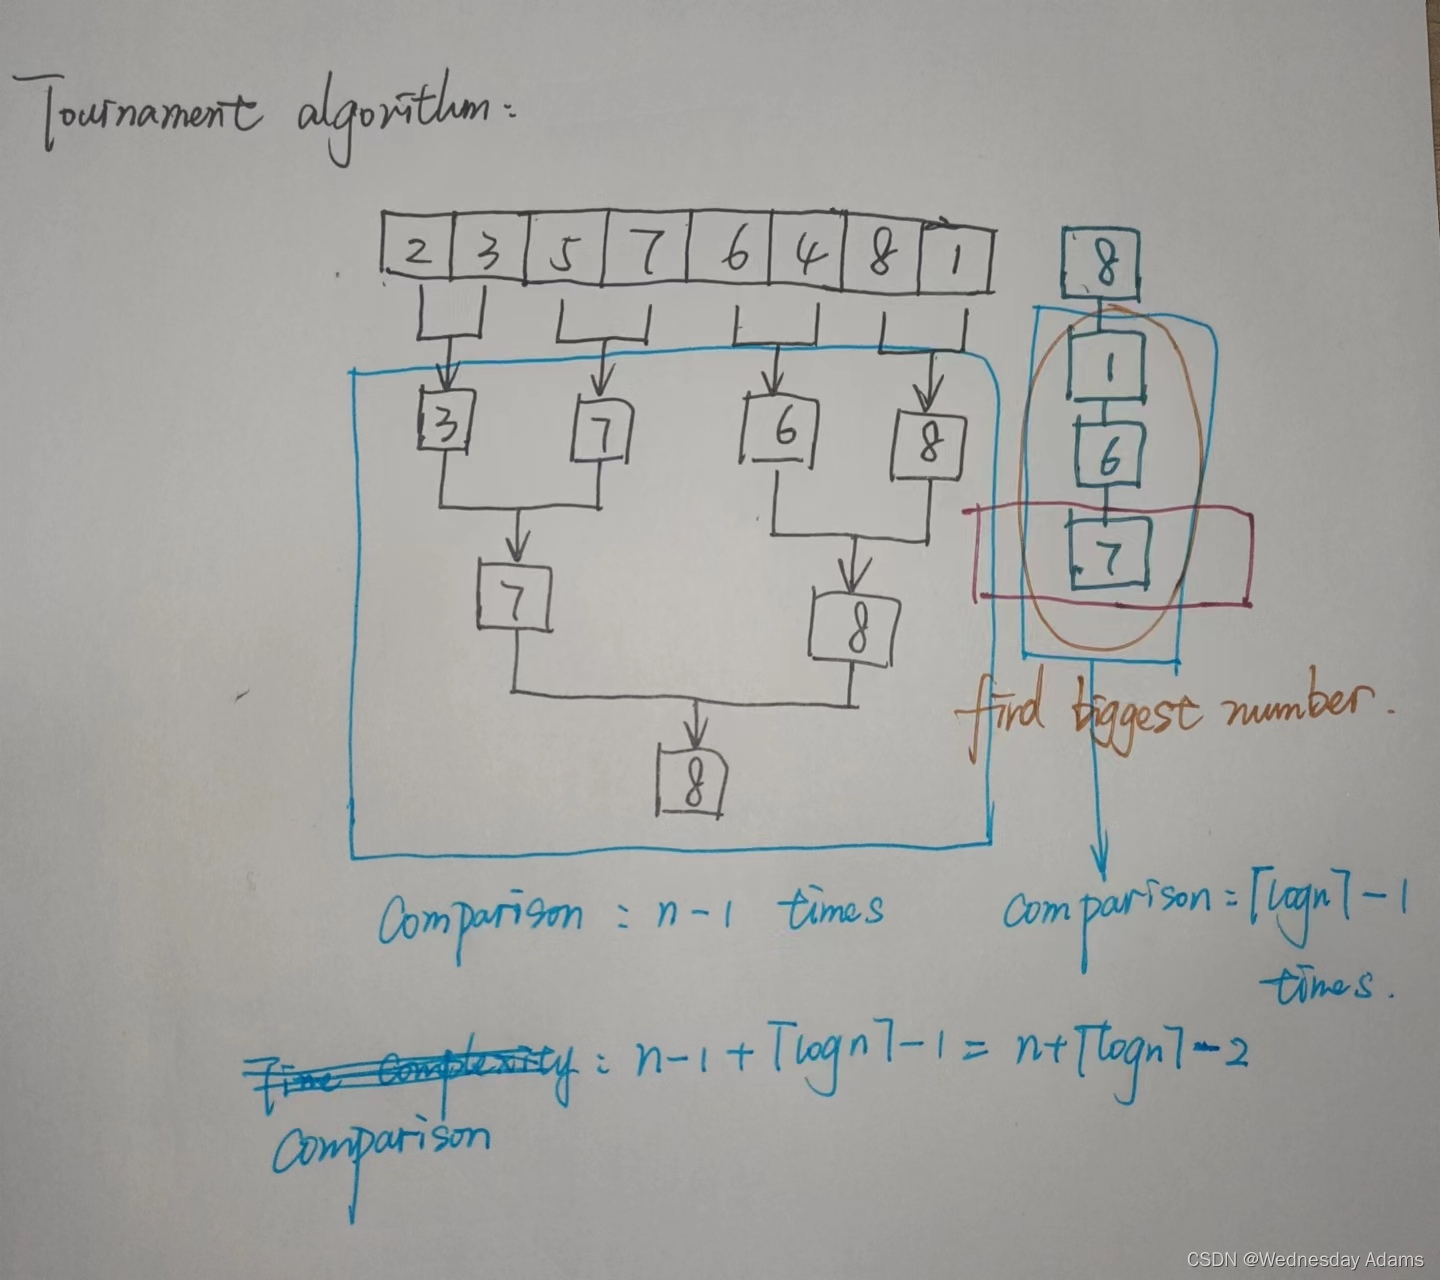 Tournament algorithm:
2 3 5 7 6 4 8 1
8
1
3 7 6 8
6
7
7 8
find biggest number.
8
Comparison : n-1 times
comparison = ⌈logn⌉-1
times.
Time Complexity : n-1+⌈logn⌉-1 = n+⌈logn⌉-2
Comparison
CSDN @Wednesday Adams